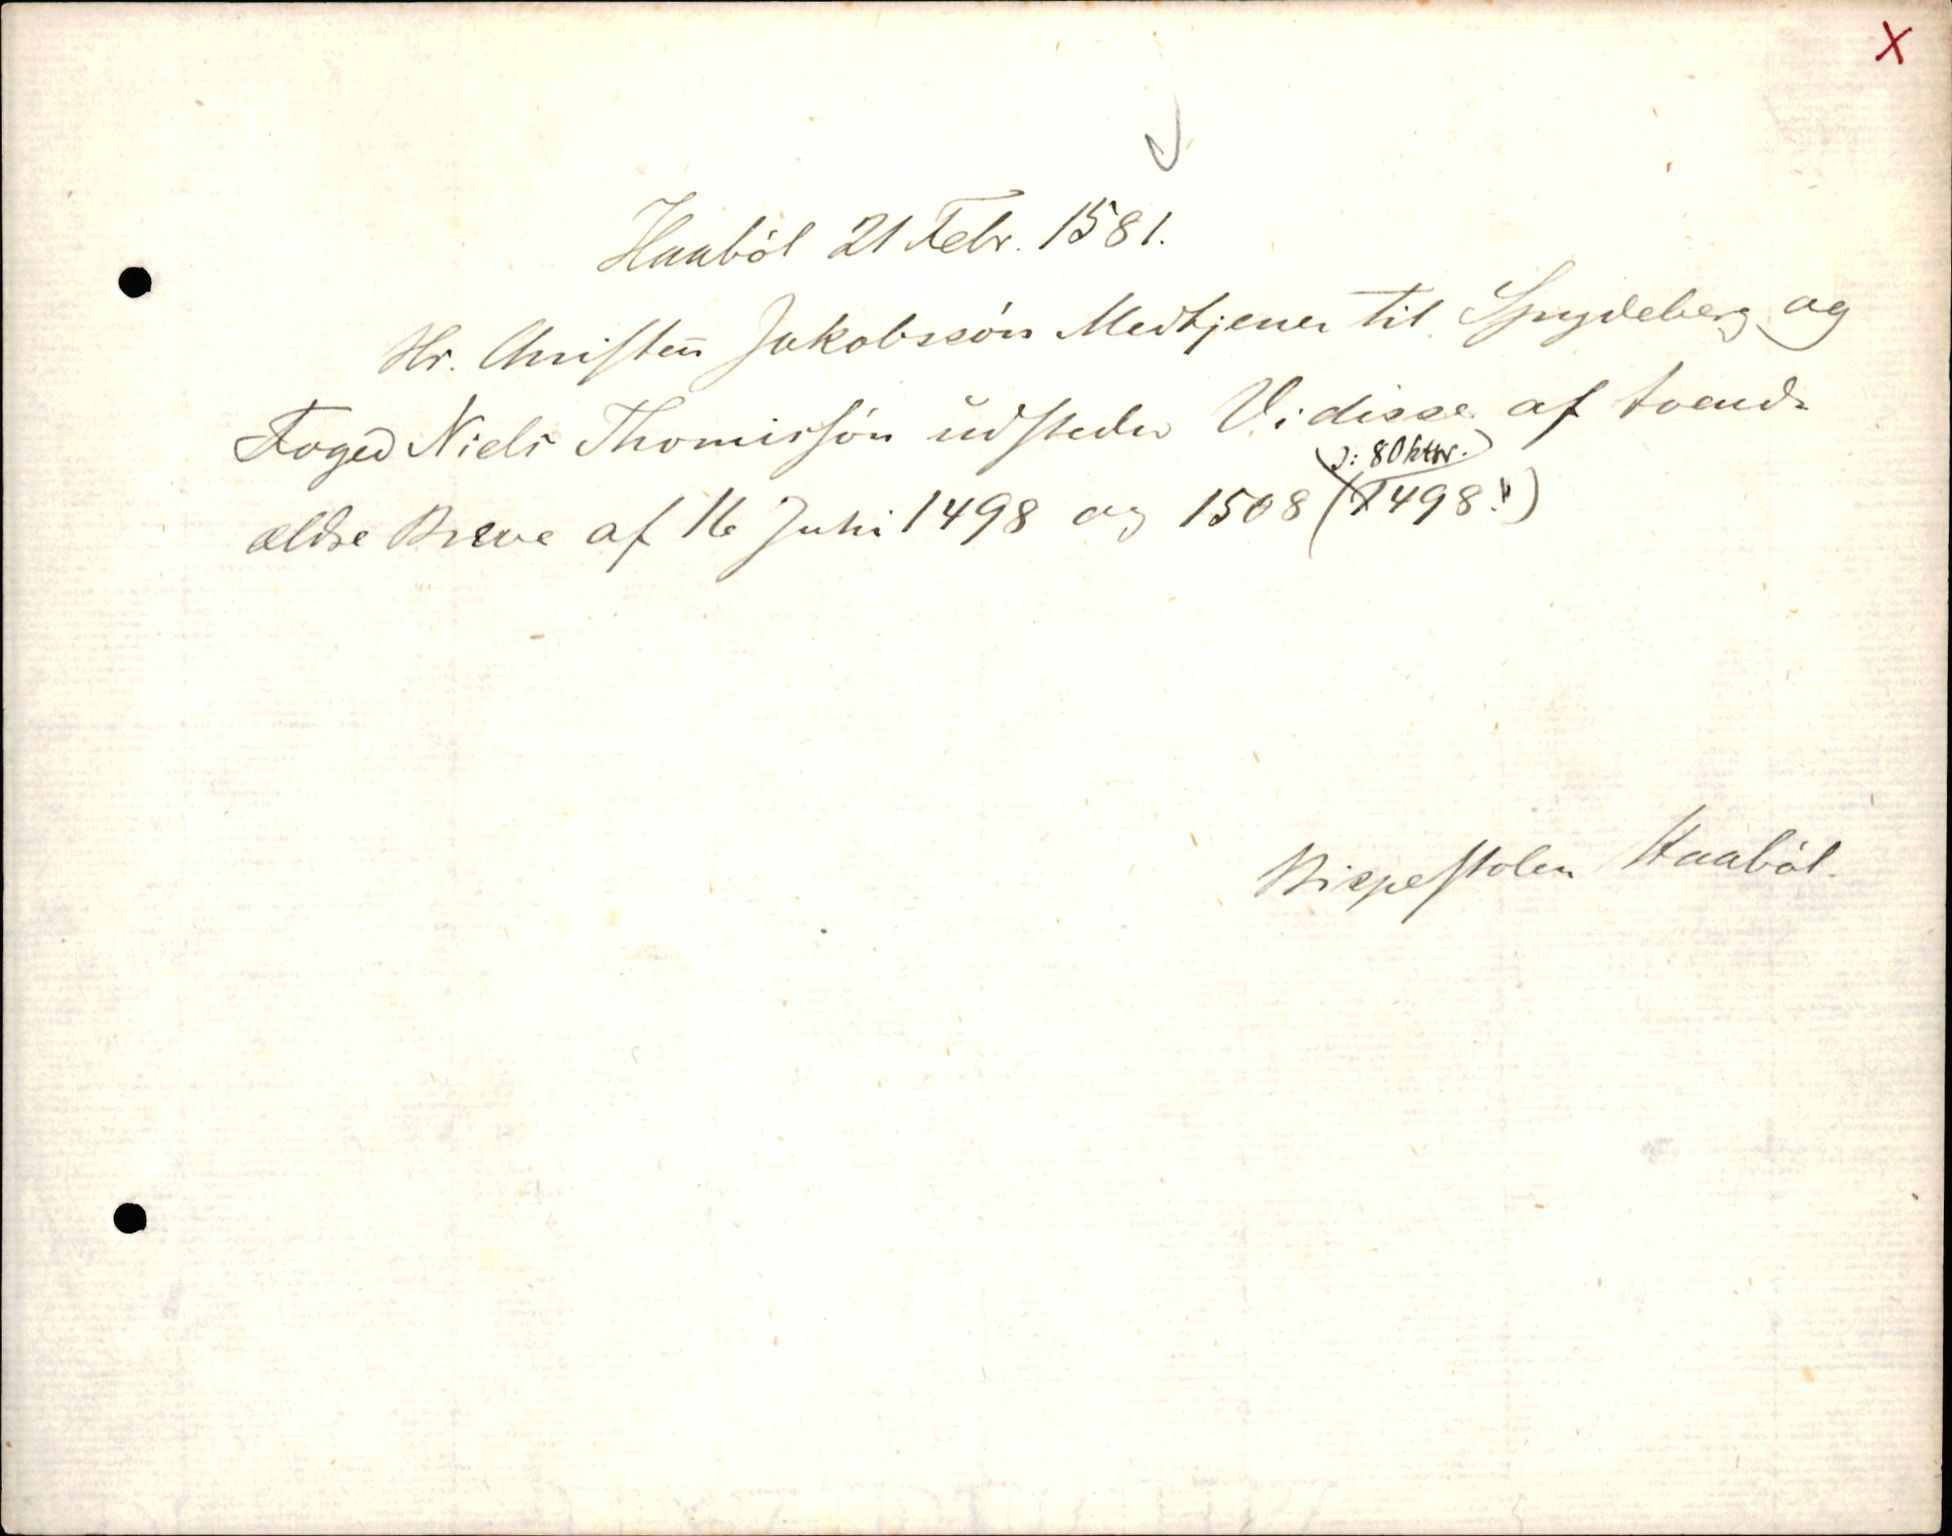 X
Haaböl 21 Febr. 1581.
Hr. Christen̄ Jakobssön Medtjener til Spydeberg og
Foged Niels Thomissön udsteder Vidisse af tvende
(ɔ: 8 Oktbr.)
ældre Breve af 16 Juni 1498 og 1508 (1498!)
Bispestolen Haaböl.